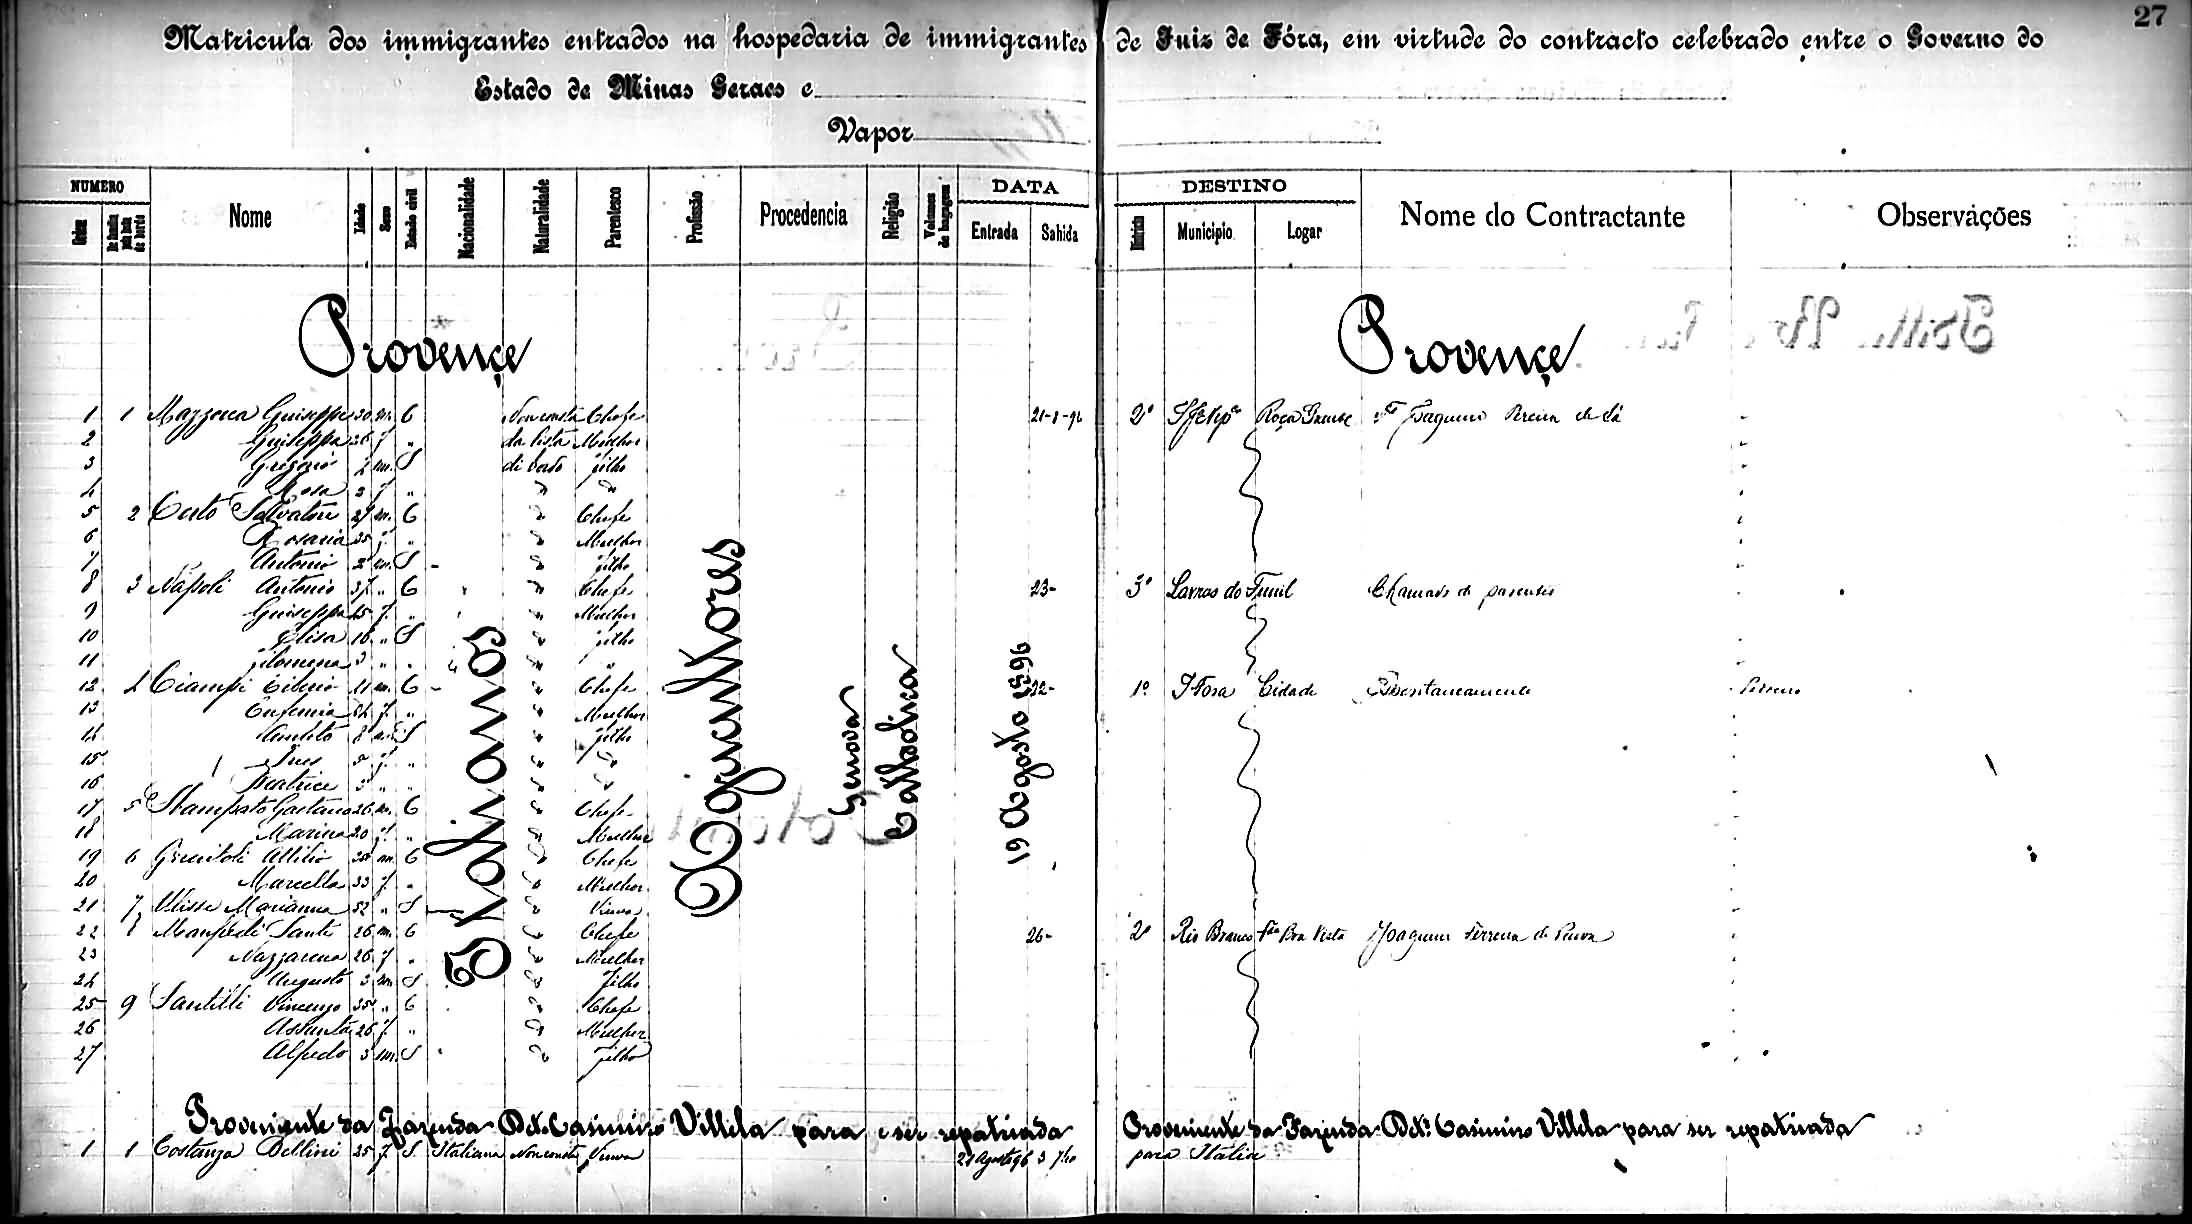 27
Matricula dos immigrantes entrados na hospedaria de immigrantes de Juiz de Fóra, em virtude do contracto celebrado entre o Governo do
Estado de Minas Geraes e
Vapor
NUMERO Nome Idade Sexo Estado civil Nacionalidade Naturalidade Parentesco Profissão Procedencia Religião Volumes de bagagem DATA DESTINO Nome do Contractante Observações
Ordem De familia pela lista de bordo Entrada Sahida Districto Municipio Logar
Provençe Provençe
Italianos Agricultores Genova Catholica 19 Agosto 1896
1 1 Mazzocca Guiseppe 30 m. C Non consta Chefe 21-8-96 2º Roça Grande Joaquim Pereira de Sá
2 Guiseppa 26 f " da lista Mulher
3 Gregorio m. S di bordo filho
4 Rosa 2 f "
5 2 Salvatore 27 m. C Chefe
6 Rosaria 25 f. " Mulher
7 Antonio 2 m. S filho
8 3 Napoli Antonio 37 " C Chefe 23- 3º Lavras do Funil Chamado de parentes
9 Guiseppa f. " Mulher
10 Elisa 16 " S filho
11 Filomena 3 " "
12 4 Ciampi m. C Chefe 22- 1º J Fora Cidade Espontaneamente
13 Eufemia f. " Mulher
14 8 m. S filho
15 Ines f "
16 Beatrice 3 "
17 5 Stampato Gaetano 26 m. C Chefe
18 Marina 20 f. " Mulher
19 6 Attilio m. C Chefe
20 Marcella 33 f. " Mulher
21 7 Ulisse Marianna 52 " S Viuva
22 Manfredi Sante 26 m. C Chefe 26- 2º Rio Branco Fda Boa Vista Joaquim Ferreira de Paiva
23 Nazzarena 26 f " Mulher
24 Augusto 3 m. S filho
25 9 Santilli Vincenzo 35 " C Chefe
26 Assunta 26 f. " Mulher
27 Alfredo 3 m. S filho
Proveniente da Fazenda Casimiro Villela para ser repatriada Proveniente da Fazenda Casimiro Villela para ser repatriada
1 1 Costanza Bellini 25 f. S Italiana Non consta Viuva Agosto 96 para Italia